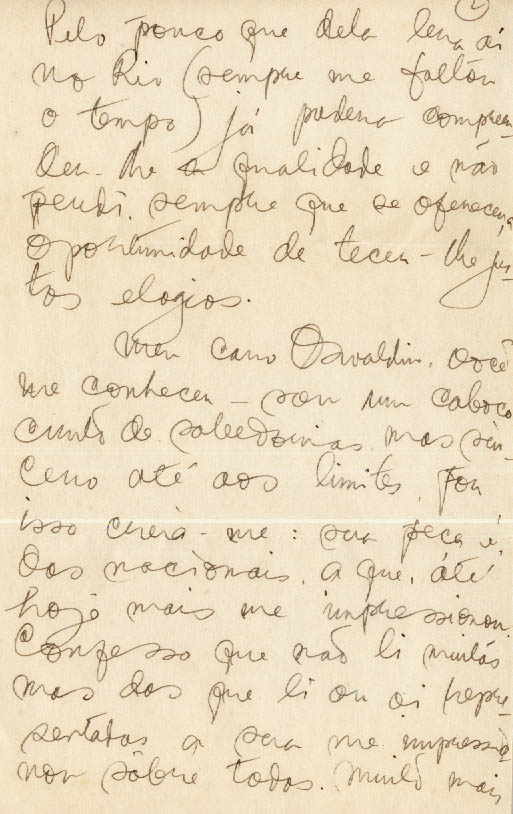 2
Pelo pouco que dela lera aí
no Rio (sempre me faltou
o tempo) já pudera compreen
der-lhe a qualidade e não
perdi, sempre que se oferecera
oportunidade de tecer-lhe jus-
tos elogios.
Meu caro Osvaldin, você
me conhece – sou um caboco
curto de sabedorias mas sin-
cero até aos limites, por
isso creia-me: sua peça é,
das nacionais, a que, até
hoje mais me impressionou.
Confesso que não li muitas
mas das que li ou vi repre-
sentadas a sua me impressio
nou sôbre todas. Muito mais